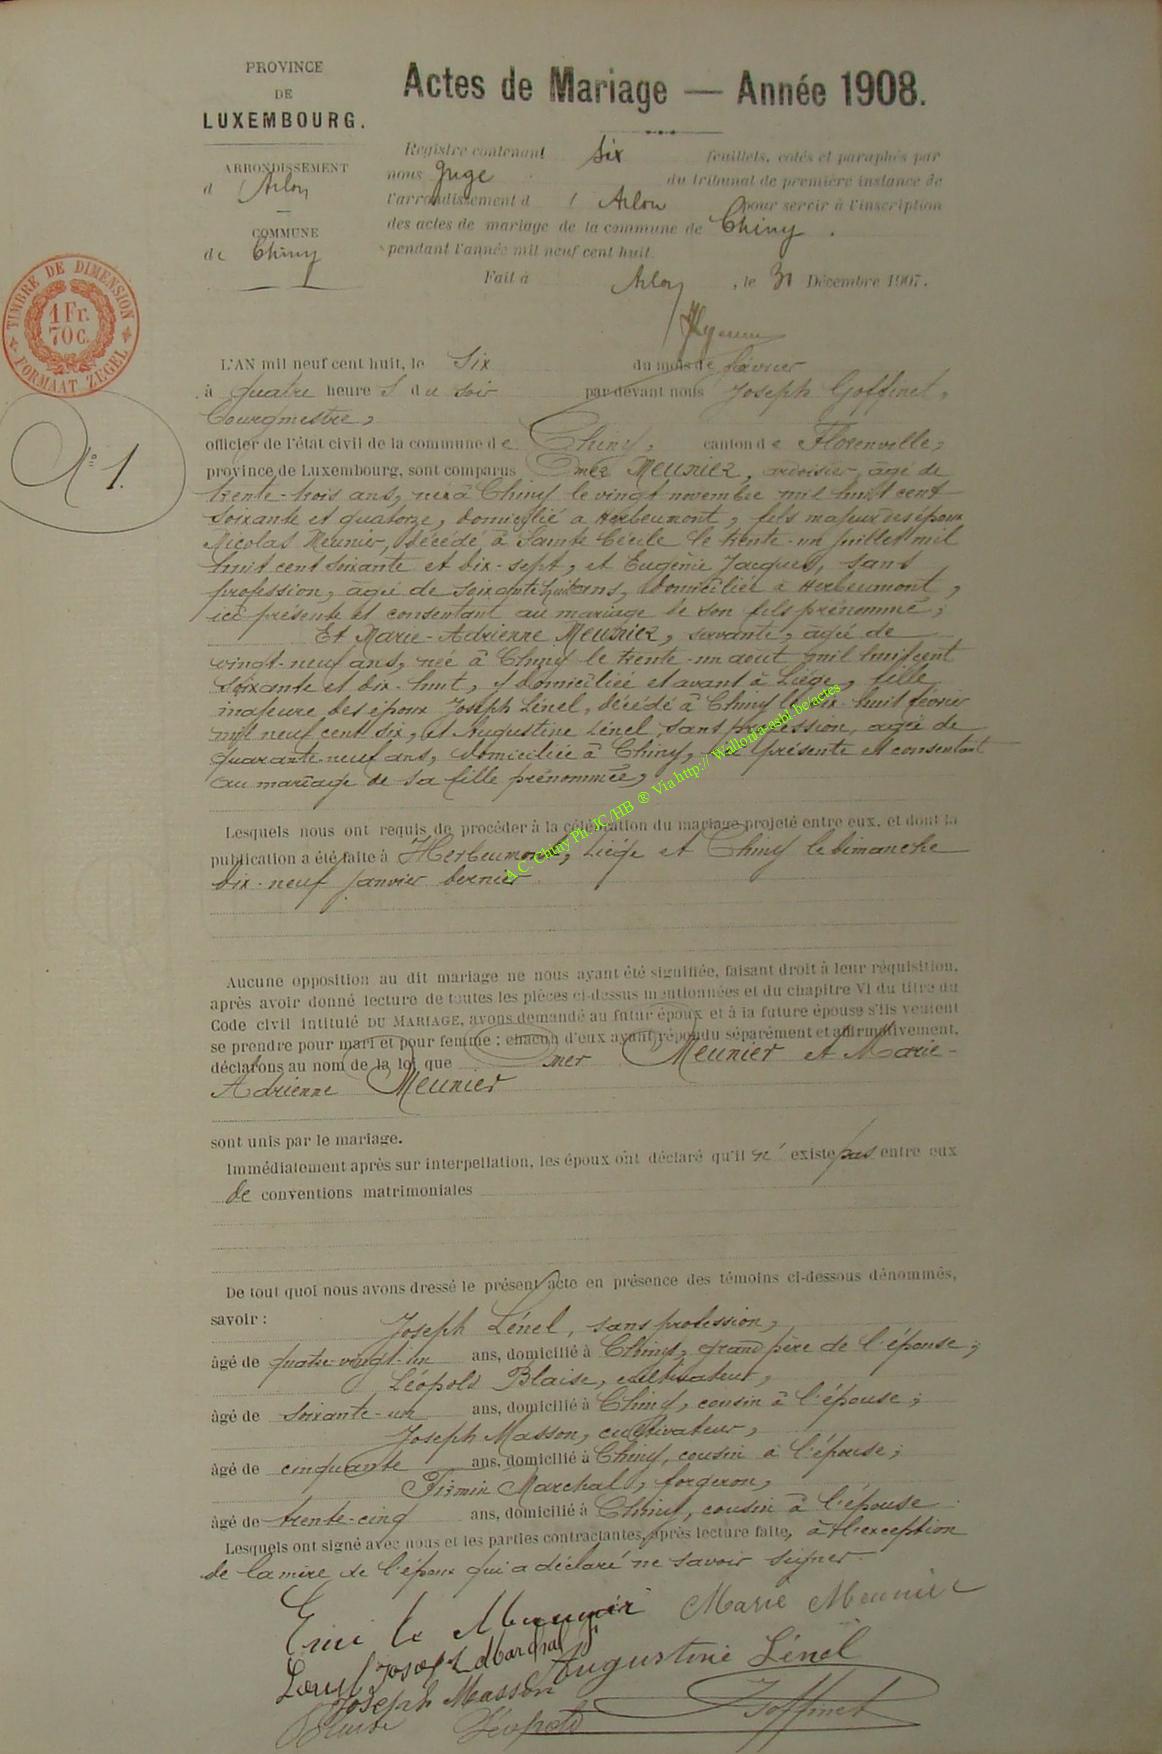 PROVINCE
DE
LUXEMBOURG.
ARRONDISSEMENT
d' Arlon
COMMUNE
de Chiny
Actes de Mariage — Année 1908.
Registre contenant six feuillets, cotés et paraphés par
nous Juge du tribunal de première instance de
l'arrondissement d' Arlon pour servir à l'inscription
des actes de mariage de la commune de Chiny.
pendant l'année mil neuf cent huit.
Fait à Arlon, le 31 Décembre 1907.
TIMBRE DE DIMENSION
1 Fr.
70 c.
FORMAAT ZEGEL
N° 1.
L'AN mil neuf cent huit, le six du mois de février
à quatre heures du soir par devant nous Joseph Goffinet,
bourgmestre,
officier de l'état civil de la commune de Chiny, canton de Florenville,
province de Luxembourg, sont comparus Omer Meunier, ardoisier, âgé de
trente-trois ans, né à Chiny le vingt novembre mil huit cent
soixante et quatorze, domicilié à Herbeumont, fils majeur des époux
Nicolas Meunier, décédé à Sainte Cécile le trente-un juillet mil
huit cent soixante et dix-sept, et Eugénie Jacques, sans
profession, âgée de soixante huit ans, domiciliée à Herbeumont,
ici présente et consentant au mariage de son fils prénommé;
Et Marie-Adrienne Meunier, servante, âgée de
vingt-neuf ans, née à Chiny le trente-un août mil huit cent
soixante et dix-huit, y domiciliée et avant à Liége, fille
majeure des époux Joseph Lénel, décédé à Chiny le dix-huit février
mil neuf cent six, et Augustine Lénel, sans profession, agée de
quarante-neuf ans, domiciliée à Chiny, ici présente et consentant
au mariage de sa fille prénommée,
Lesquels nous ont requis de procéder à la célébration du mariage projeté entre eux, et dont la
publication a été faite à Herbeumont, Liége et Chiny le dimanche
dix-neuf janvier dernier
A.C. Chiny Ph. JC/HB ® Via http:// Wallonia-asbl.be/actes
Aucune opposition au dit mariage ne nous ayant été signifiée, faisant droit à leur réquisition,
après avoir donné lecture de toutes les pièces ci-dessus mentionnées et du chapitre VI du titre du
Code civil intitulé DU MARIAGE, avons demandé au futur époux et à la future épouse s'ils veulent
se prendre pour mari et pour femme : chacun d'eux ayant répondu séparément et affirmativement,
déclarons au nom de la loi que Omer Meunier et Marie-
Adrienne Meunier
sont unis par le mariage.
Immédiatement après sur interpellation, les époux ont déclaré qu'il n'existe pas entre eux
de conventions matrimoniales
De tout quoi nous avons dressé le présent acte en présence des témoins ci-dessous dénommés,
savoir :
Joseph Lénel, sans profession,
âgé de quatre-vingt-un ans, domicilié à Chiny, grand père de l'épouse,
Léopold Blaise, cultivateur,
âgé de soixante-un ans, domicilié à Chiny, cousin à l'épouse;
Joseph Masson, cultivateur,
âgé de cinquante ans, domicilié à Chiny, cousin à l'épouse;
Firmin Marchal, forgeron,
âgé de trente-cinq ans, domicilié à Chiny, cousin à l'épouse
Lesquels ont signé avec nous et les parties contractantes, après lecture faite, à l'exception
de la mère de l'époux qui a déclaré ne savoir signer.
Meunier Marie Meunier
Joseph Marchal F
Augustine Lénel
Joseph Masson
Blaise Léopold J Goffinet